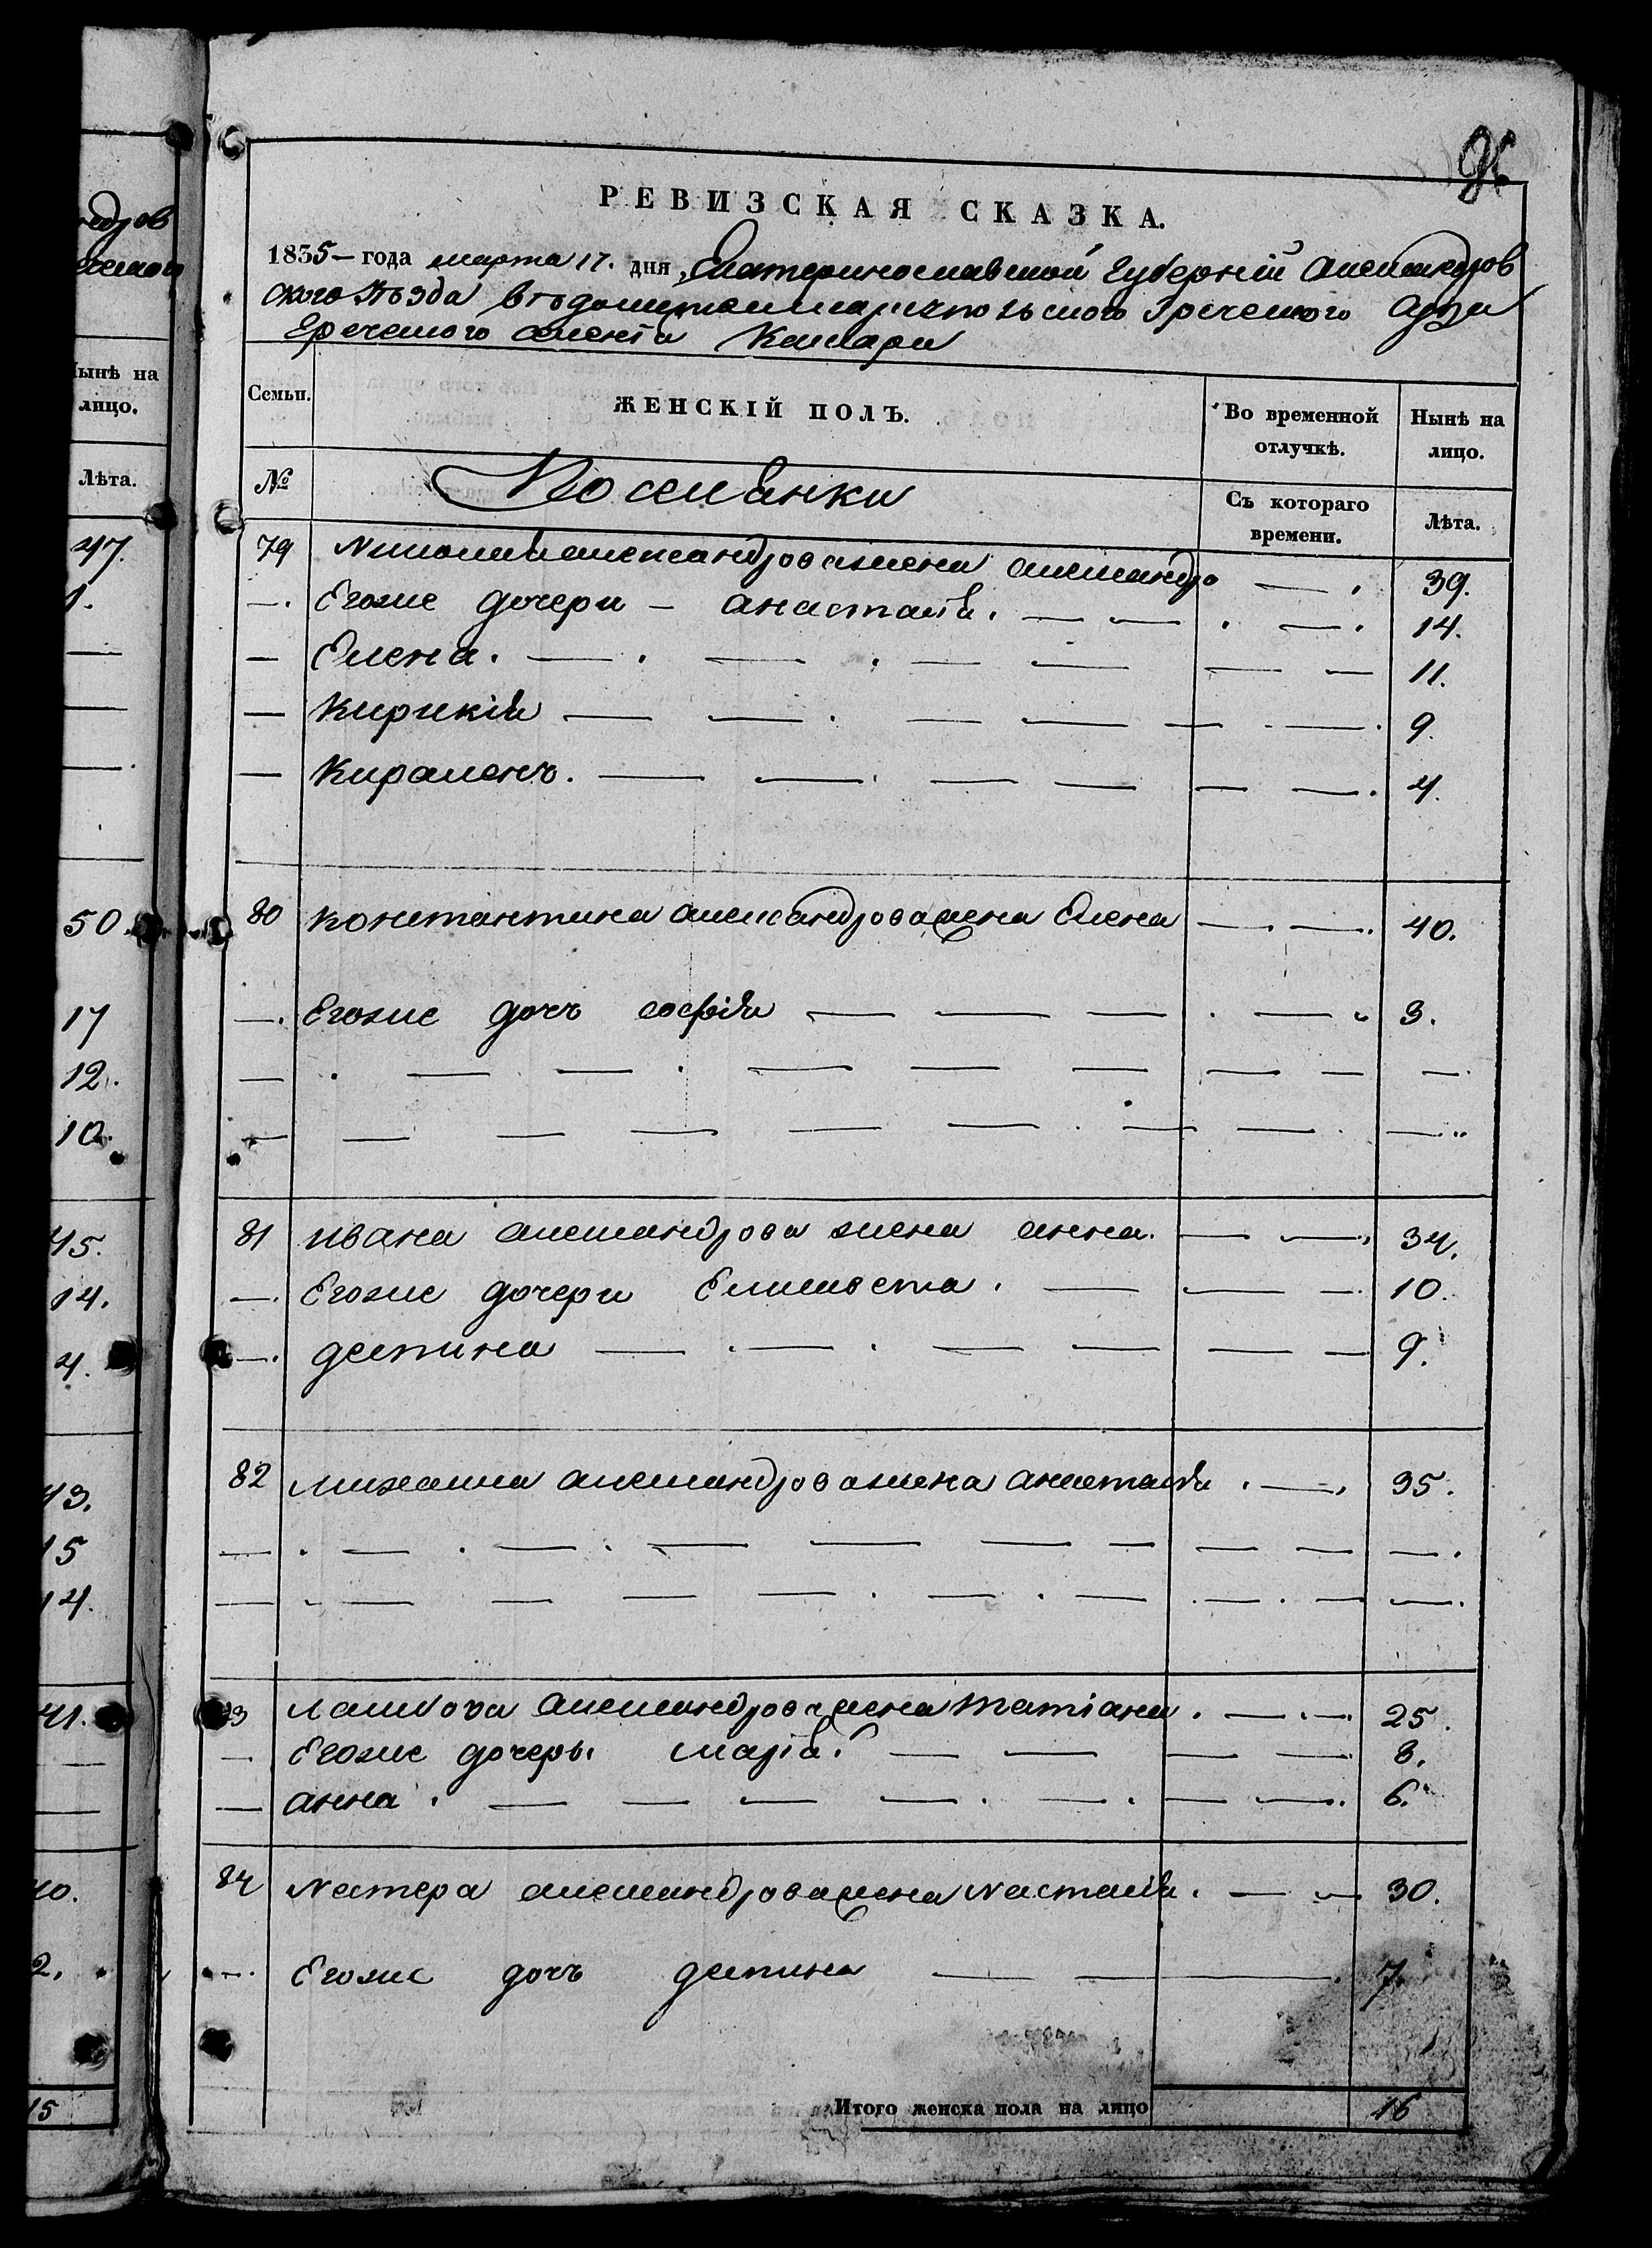 РЕВИЗСКАЯ СКАЗКА.
1835 – года марта 17. дня, Екатеринославской Губерніи Александров
ского уѣзда вѣдомства мариупольского Греческого суда
Греческого селенія Камари
Семьи. ЖЕНСКІЙ ПОЛЪ. Во временной отлучкѣ. Нынѣ на лицо.
№ Поселянки Съ котораго времени. Лѣта.
79 Николая александрова жена александра 39.
Егоже дочери – анастасія. 14.
Елена. 11.
Кирикія 9.
4.
80 константина александрова жена Елена 40.
Егоже дочь софія 3.
81 ивана александрова жена анна. 34.
Егоже дочери Елисавета. 10.
деспина 9.
82 михаила александрова жена анастасія 35.
83 александрова жена татіана. 25.
Егоже дочеры марія. 8.
анна. 6.
84 александрова жена Настасія. 30.
Егоже дочь деспина 7.
Итого женска пола на лицо 16
ндров
Нынѣ на
лицо.
Лѣта.
47.
1.
50
17
12.
10.
45.
14.
4.
43.
15
14.
41.
40.
2.
15